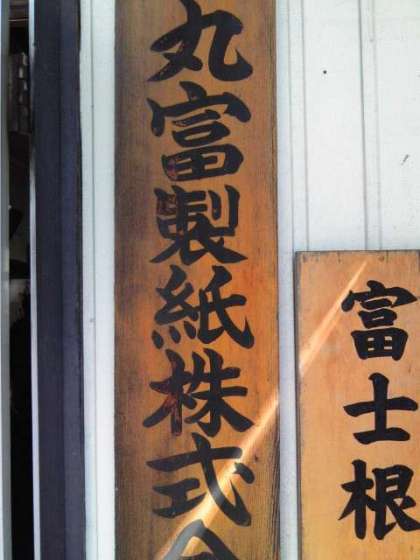 丸富製紙株式会
富士根